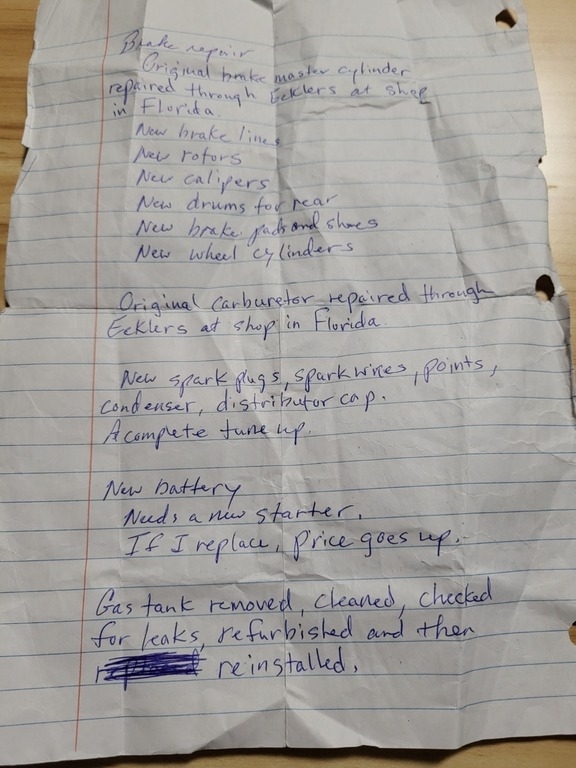 Brake repair
Original brake master cylinder
repaired through Ecklers at shop
in Florida.
New brake lines
New rotors
New calipers
New drums for rear
New brake pads and shoes
New wheel cylinders
Original carburetor repaired through
Ecklers at shop in Florida.
New spark plugs, spark wires, points,
condenser, distributor cap.
A complete tune up.
New battery
Needs a new starter.
If I replace, price goes up.
Gas tank removed, cleaned, checked
for leaks, refurbished and then
reinstalled.